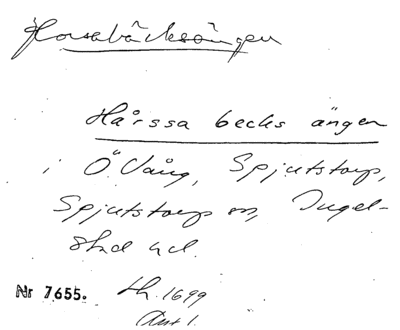 Horsabäcksängen
Hårssa becks ängen
i Ö. Vång, Spjutstorp,
Spjutstorps sn, Ingel-
stad hd.
Nr 7655. Lh. 1699
Avt 1.